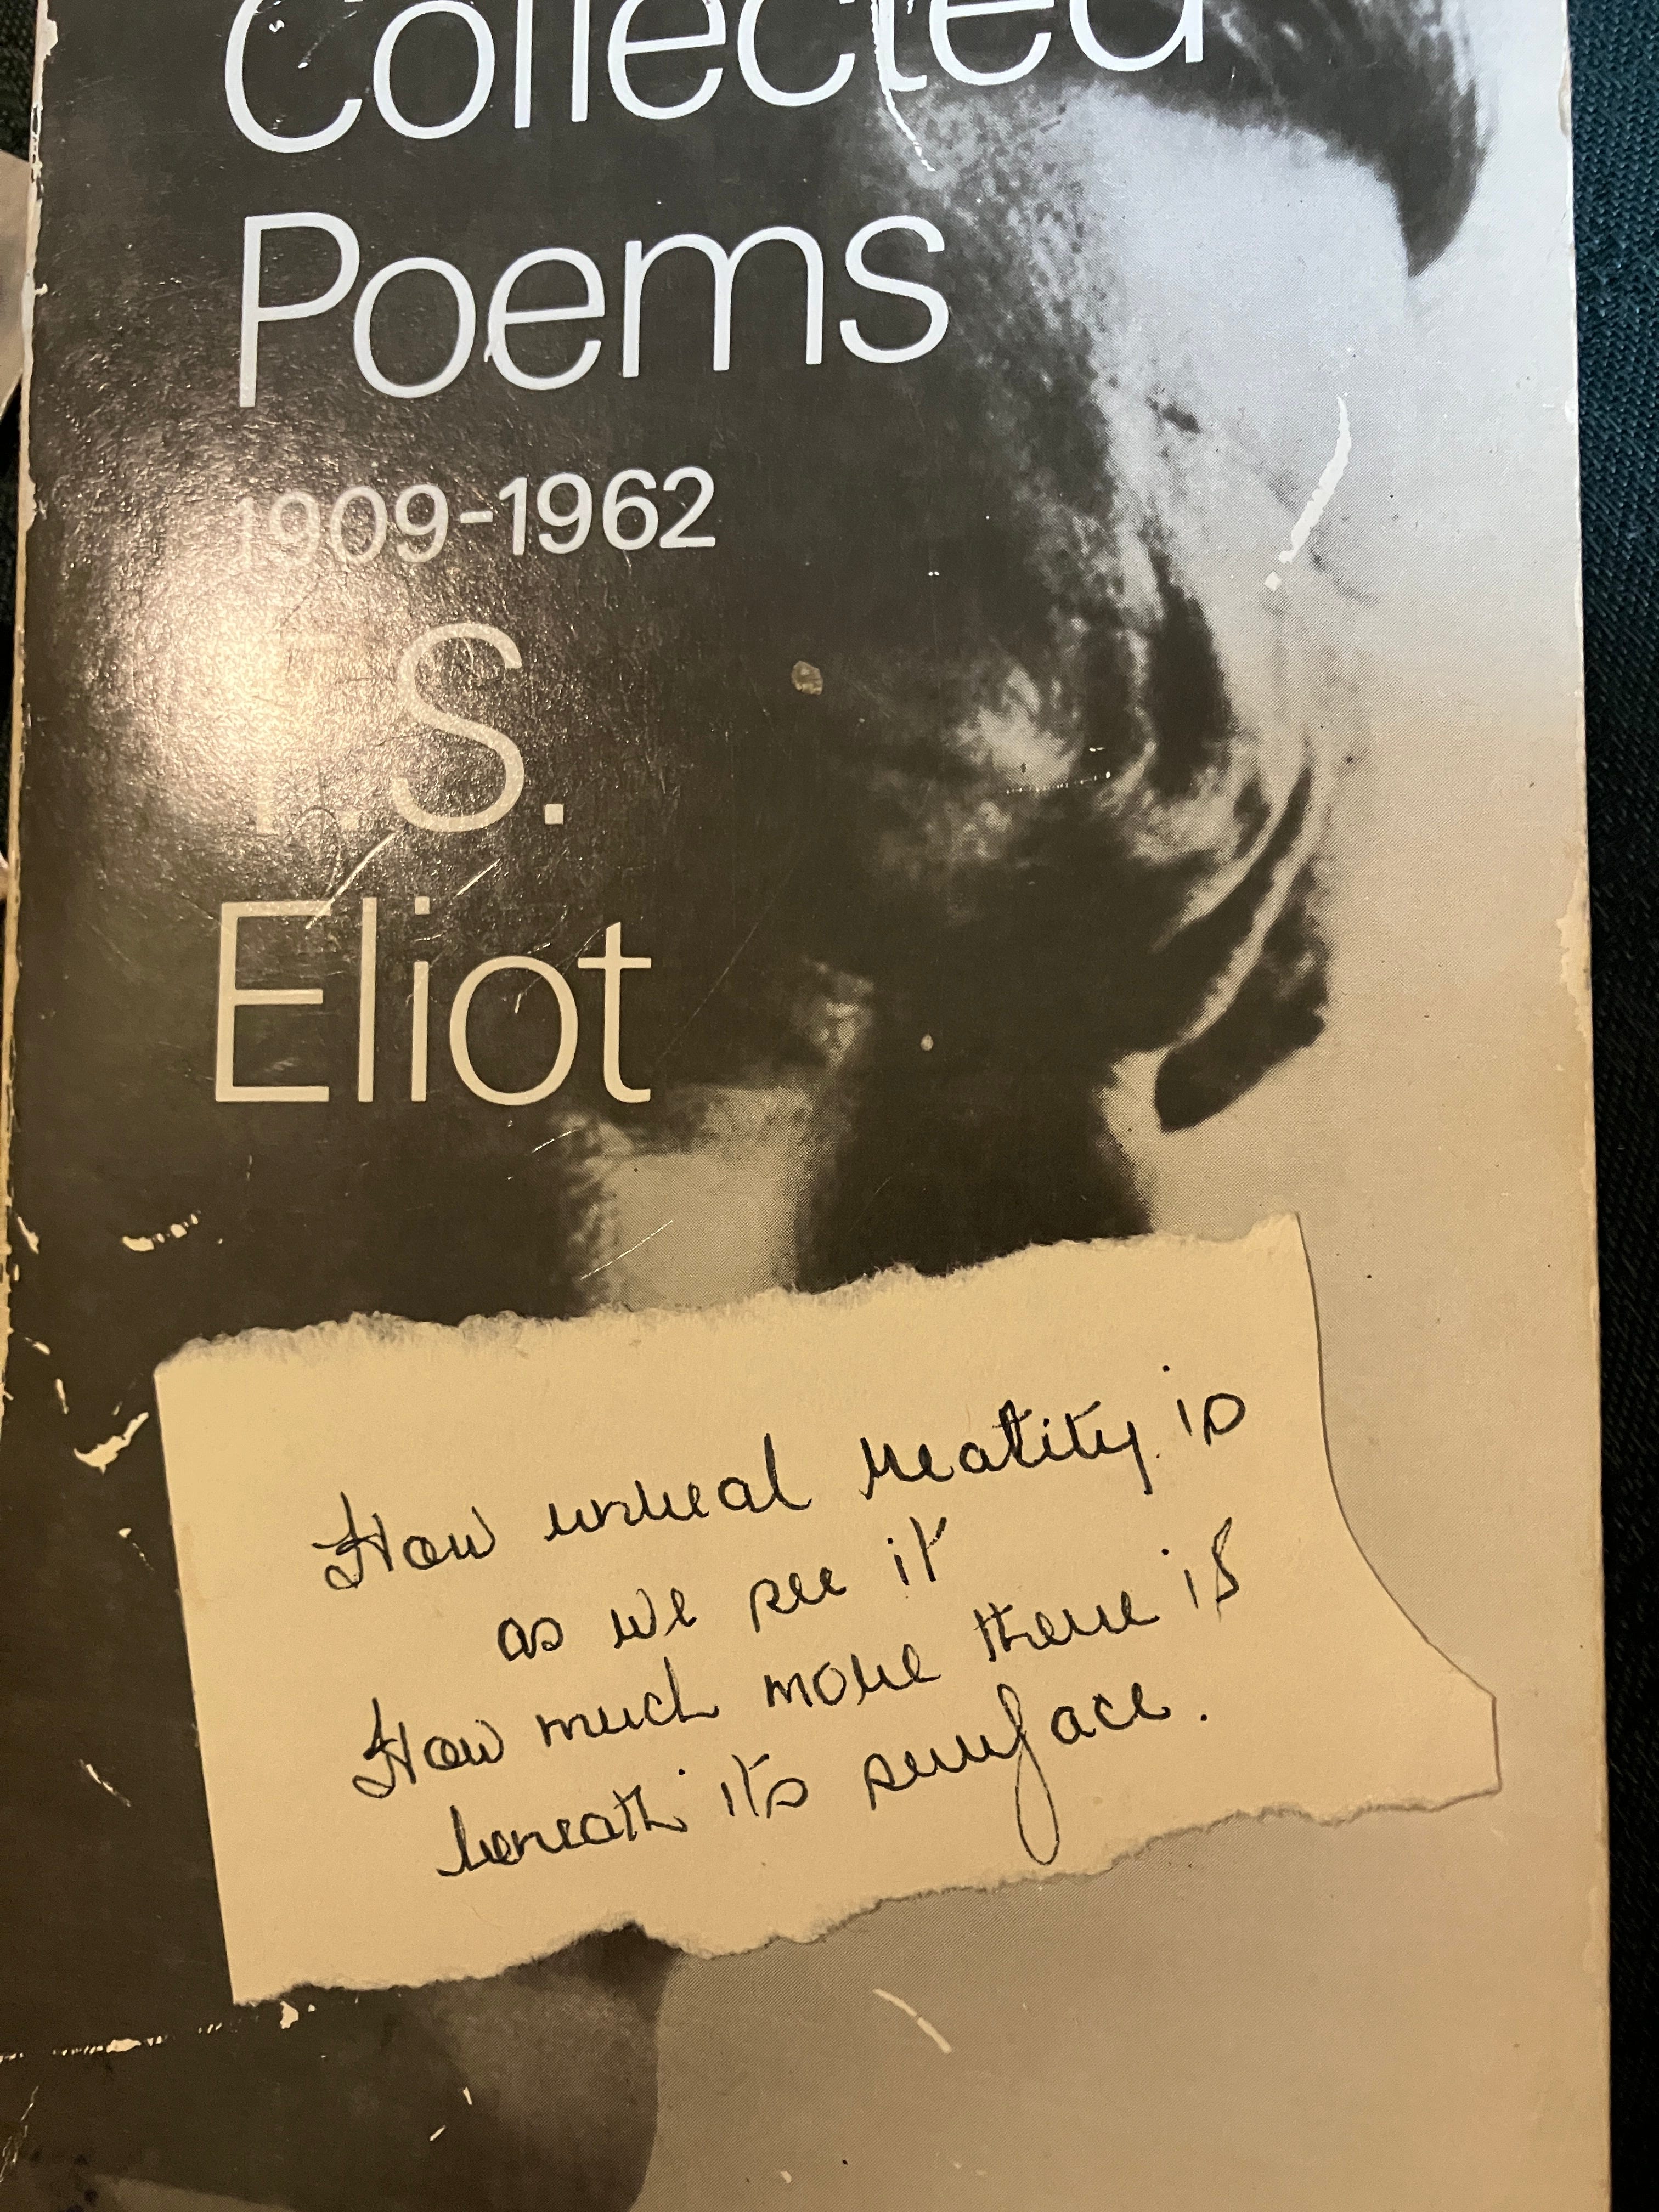 Collected
Poems
1909-1962
T.S.
Eliot
How unreal reality is
as we see it
How much more there is
beneath it's surface.